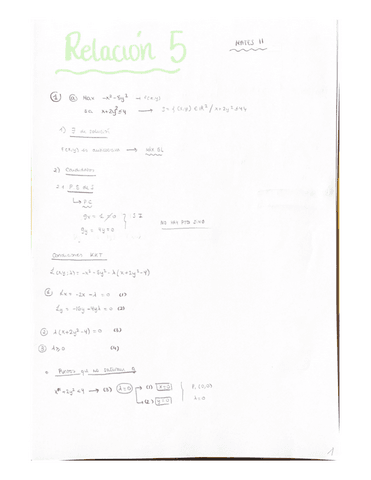 Relación 5
MATES II
① ⓐ Max -x² - 5y² → f(x,y)
s.a. x + 2y² ≤ 4 → S = { (x,y) ∈ R² / x + 2y² ≤ 4 }
1)
f(x,y) es
2) Candidatos
P.S de S
↳ P.C
gx = 1 ≠ 0
gy = 4y = 0
No hay ptos
Condiciones KKT
L(x,y,λ) = -x² - 5y² - λ(x + 2y² - 4)
Lx = -2x - λ = 0 (1)
Ly = -10y - 4yλ = 0 (2)
λ(x + 2y² - 4) = 0 (3)
λ ≥ 0 (4)
Puntos que no saturan
x + 2y² < 4 → (3) λ = 0 → (1) x = 0
→ (2) y = 0
P. (0,0)
λ = 0
1